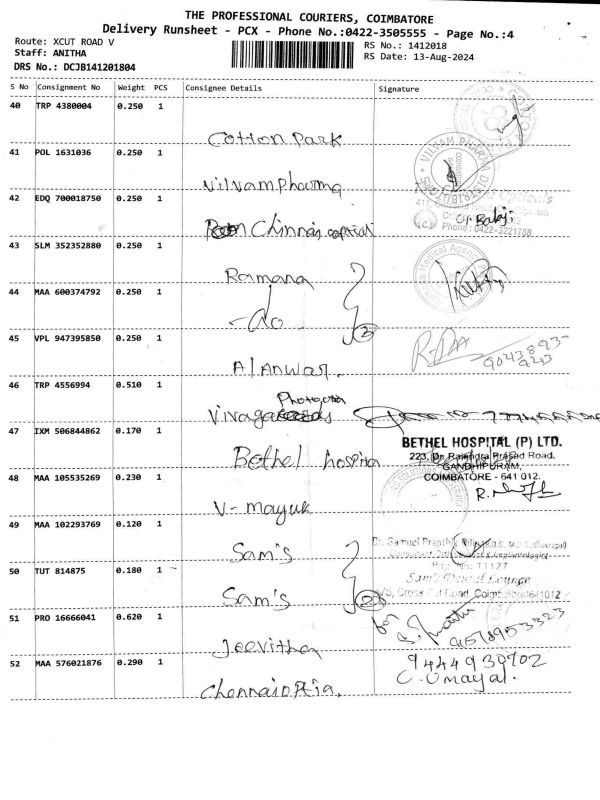 THE PROFESSIONAL COURIERS, COIMBATORE
Delivery Runsheet - PCX - Phone No.:0422-3505555 - Page No.:4
Route: XCUT ROAD V RS No.: 1412018
Staff: ANITHA RS Date: 13-Aug-2024
DRS No.: DCJB141201804
S No Consignment No Weight PCS Consignee Details Signature
40 TRP 4380004 0.250 1
Cotton Park
41 POL 1631036 0.250 1
Vilvampharma
VILVAM PHARMA DISTRIBUTORS
42 EDQ 700018750 0.250 1
Chinnais capital
Balaji
Phone : 0422-3221768
43 SLM 352352880 0.250 1
Ramana
Medical Agency
44 MAA 600374792 0.250 1
-do
2
45 VPL 947395850 0.250 1
Alanwar.
46 TRP 4556994 0.510 1
Vinayaga
47 IXM 506844862 0.170 1
Bethel hospital
BETHEL HOSPITAL (P) LTD.
223, Dr. Rajendra Prasad Road,
GANDHIPURAM,
COIMBATORE - 641 012.
48 MAA 105535269 0.230 1
V- mayuk
49 MAA 102293769 0.120 1
Sam's
Dr. Samuel
50 TUT 814875 0.180 1
Sam's
2
Reg. No: 11127
Sam's Dental Lounge
Cross Cut Road, Coimbatore-641012
51 PRO 16666041 0.620 1
Jeevitha
9578953323
52 MAA 576021876 0.290 1
Chennai optia.
9444930702
C. Umayal.